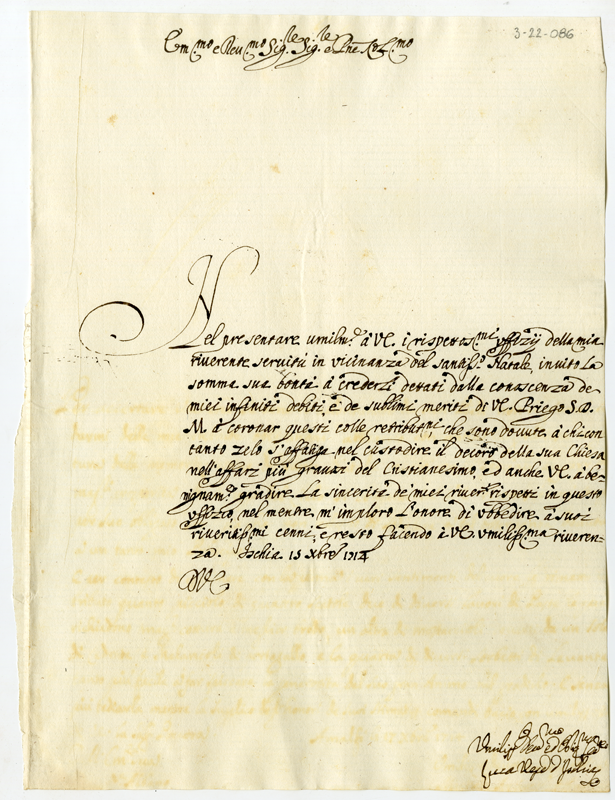 3-22-086
Em.mo e Reu.mo Sig.re Sig.re e Pne Col.mo
Nel presentare umilm.e à VE. i rispettos.mi uffizij della mia
riverente servitù in vicinanza del santiss.o Natale, invito la
somma sua bontà à crederli dettati dalla conoscenza de
miei infiniti debiti, e de sublimi meriti di VE. Priego S.D.
M. à coronar questi colle retribut.ni che sono dovute à chi con
tanto zelo s'affatiga nel custodire il decoro della sua Chiesa
nell'affari più gravosi del Cristianesimo, ed anche VE. à be-
nignam.e gradire la sincerità de miei river.ti rispetti in questo
uffizio, nel mentre m'imploro l'onore di ubbedire à suoi
riveritiss.mi cenni, e resto facendo à VE. umiliss.ma riveren-
za. Ischia 15 Xbre 1714
DVE
Umiliss. Dev. ed Obl.
Luca Ves.o d'Ischia